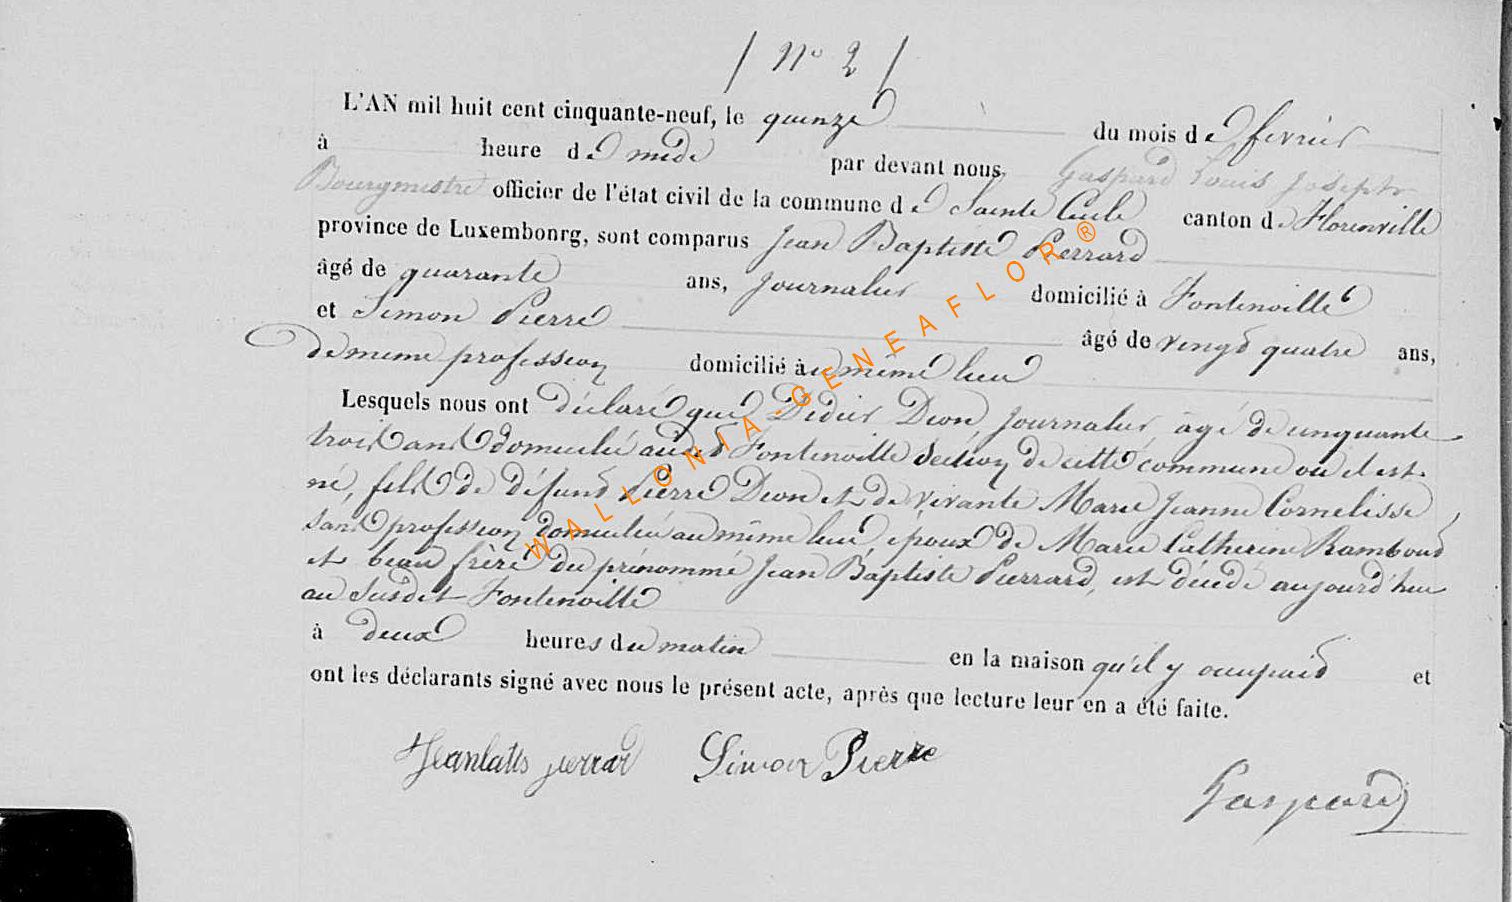 / N° 2 /
L'AN mil huit cent cinquante-neuf, le quinze du mois de fevrier
à heure de midi par devant nous, Gaspard Louis Joseph
Bourgmestre officier de l'état civil de la commune de Sainte Cecile canton de Florenville
province de Luxembonrg, sont comparus Jean Baptiste Pierrard
âgé de quarante ans, journalier domicilié à Fontenoille
et Simon Pierre âgé de vingt quatre ans,
de meme profession domicilié au même lieu
Lesquels nous ont déclaré que Didier Dion, journalier âgé de cinquante
trois ans domicilié audit Fontenoille section de cette commune où il est
né, fils de défunt Pierre Dion et de vivante Marie Jeanne Cornelisse
sans profession domiciliée au même lieu époux de Marie Catherine Rambout
et beau frère du prénommé Jean Baptiste Pierrard, est décédé aujourd'hui
au susdit Fontenoille
à deux heures du matin en la maison qu'il y occupait et
ont les déclarants signé avec nous le présent acte, après que lecture leur en a été faite.
Simon Pierre
Gaspard
WALLONIA-GENEAFLOR®